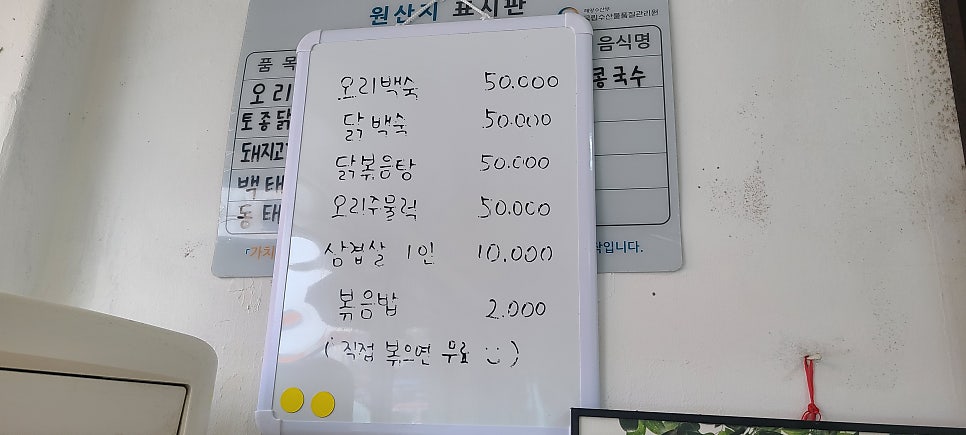 원산지 표시판
품 목
음식명
오리
콩국수
토종닭
돼지고
백태
동태
「가치
입니다.
오리백숙 50.000
닭백숙 50.000
닭볶음탕 50.000
오리주물럭 50.000
삼겹살 1인 10.000
볶음밥 2.000
(직접 볶으면 무료 :))